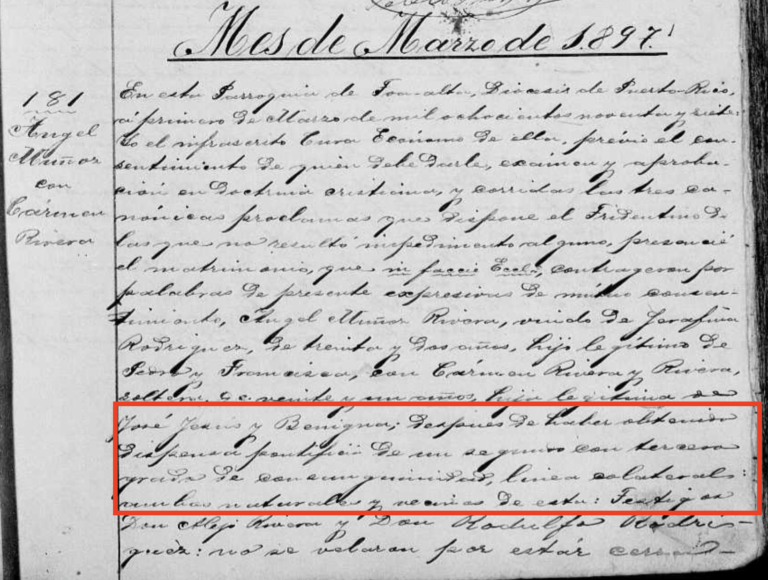 Mes de Marzo de 1.897.
181
Ángel
Muñoz
con
Cármen
Rivera
En esta Parroquia de Toa-alta, Diócesis de Puerto-Rico,
á primero de Marzo de mil ochocientos noventa y siete:
Yo el infrascrito Cura Ecónomo de ella, prévio el con-
sentimiento de quién debe darle, exámen y aproba-
ción en doctrina cristiana, y corridas las tres ca-
nónicas proclamas que dispone el Tridentino de
las que no resultó impedimento alguno, presencié
el matrimonio, que in faccie Eccle, contrageron por
palabras de presente expresivas de mútuo consen-
timiento, Ángel Muñoz Rivera, viudo de Serafina
Rodriguez, de treinta y dos años, hijo legítimo de
Pedro y Francisca, con Cármen Rivera y Rivera,
soltera, de veinte y un años, hija legítima de
José Jesús y Benigna; despues de haber obtenido
dispensa pontificia de un segundo con tercero
grado de consanguinidad, linea colateral:
ambos naturales y vecinos de esta: Testigos
Don Alejo Rivera y Don Rodulfo Rodri-
guez: no se velaron por estár cerrad-